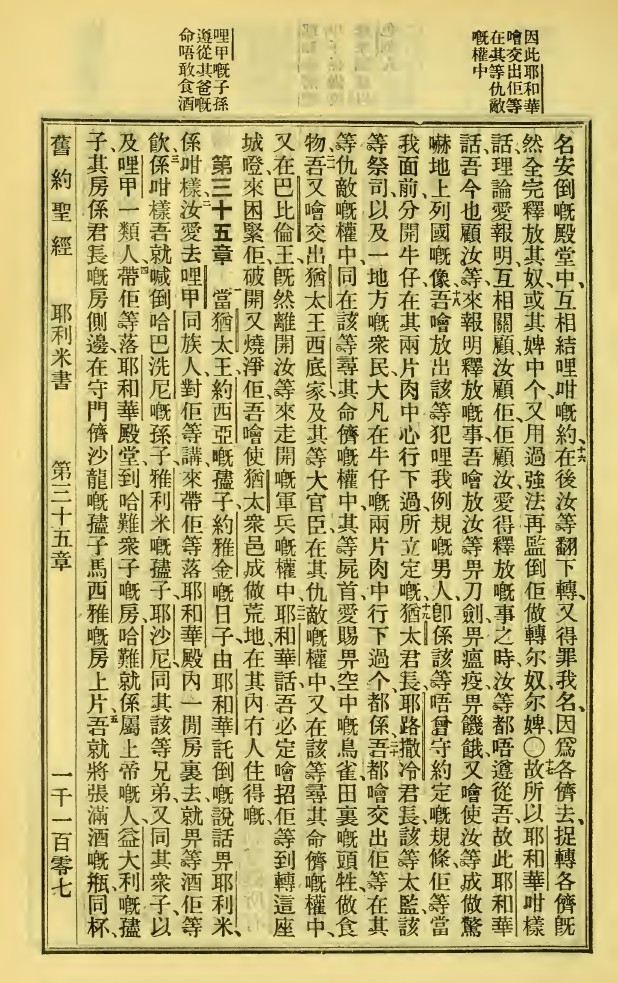 因此耶和華
噲交出佢等
在其等仇敵
嘅權中
哩甲嘅子孫
遵從其爸嘅
命唔敢食酒
名安倒嘅殿堂中、互相結哩咁嘅約、十六在後汝等翻下轉、又得罪我名、因爲各儕去捉轉各儕既
然全完釋放其奴或其婢中个、又用過強法再監倒佢做轉尔奴尔婢、〇十七故所以耶和華咁樣
話、理論愛報明、互相關顧、汝顧佢、佢顧汝、愛得釋放嘅事之時、汝等都唔遵從吾、故此耶和華
話、吾今也顧汝等、來報明釋放嘅事、吾噲放汝等畀刀劍、畀瘟疫、畀饑餓、又噲使汝等成做驚
嚇地上列國嘅像、十八吾噲放出該等犯哩我例規嘅男人、卽係該等唔曾守約定嘅規條、佢等當
我面前分開牛仔、在其兩片肉中心行下過所立定嘅、十九猶太君長、耶路撒冷君長、該等太監、該
等祭司、以及一地方嘅衆民、大凡在牛仔嘅兩片肉中行下過个都係、二十吾都噲交出佢等在其
等仇敵嘅權中、同在該等尋其命儕嘅權中、其等屍首愛賜畀空中嘅鳥雀、田裏嘅頭牲做食
物、二一吾又噲交出猶太王西底家、及其等大官臣、在其仇敵嘅權中、又在該等尋其命儕嘅權中、
又在巴比倫王旣然離開汝等來走開嘅軍兵嘅權中、二二耶和華話、吾必定噲招佢等到轉這座
城嶝來困緊佢、破開又燒淨佢、吾噲使猶太衆邑成做荒地、在其內冇人住得嘅、
第三十五章 當猶太王約西亞嘅孻子約雅金嘅日子、由耶和華託倒嘅說話畀耶利米、
係咁樣、二汝愛去哩甲同族人、對佢等講、來帶佢等落耶和華殿內一間房裏去、就畀等酒佢等
飲、係咁樣、三吾就喊倒哈巴洗尼嘅孫子、雅利米嘅孻子、耶沙尼、同其該等兄弟、又同其衆子、以
及哩甲一類人、四帶佢等落耶和華殿堂、到哈難衆子嘅房、哈難就係屬上帝嘅人、益大利嘅孻
子、其房係君長嘅房側邊、在守門儕沙龍嘅孻子馬西雅嘅房上片、五吾就將張滿酒嘅瓶同杯、
舊約聖經 耶利米書 第三十五章 一千一百零七